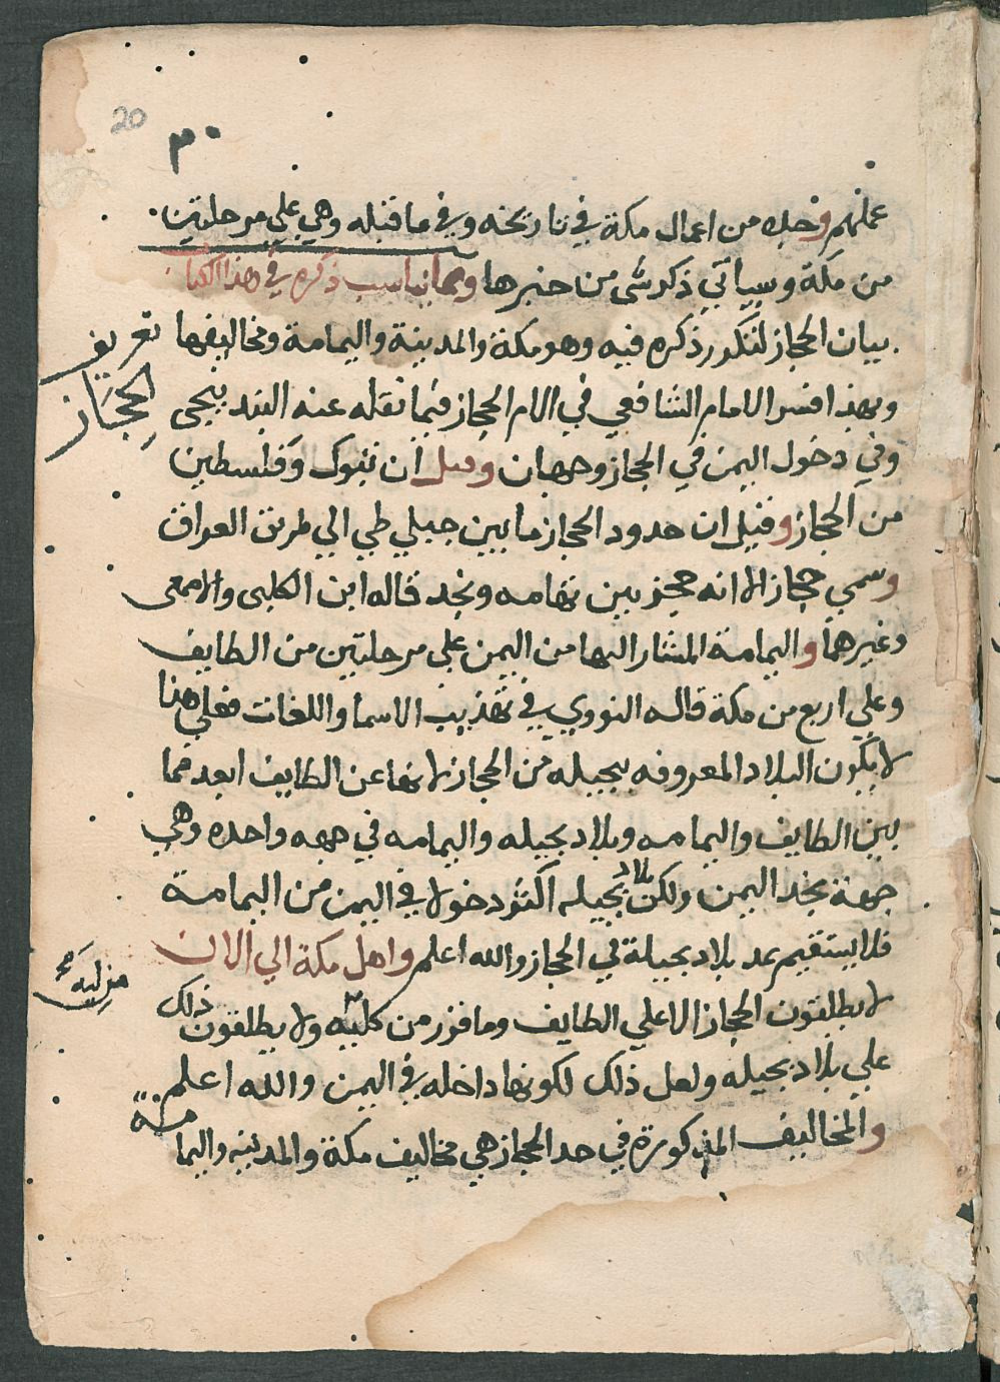 20
٢٠
عملهم وجده من اعمال مكة في تاريخه وفي ما قبله وهي على مرحلتين
من مكة وسياتي ذكر شي من خبرها ومما يناسب ذكره في هذا الكتاب
بيان الحجاز لتكرر ذكره فيه وهو مكة والمدينة واليمامة ومخاليفها
تعريف
الحجاز
وبهذا فسر الامام الشافعي في الام الحجاز فيما نقله عنه البندنيجى
وفي دخول اليمن في الحجاز وجهان وقيل ان تبوك وفلسطين
من الحجاز وقيل ان حدود الحجاز ما بين جبلي طي الي طريق العراق
وسمي حجازا لانه حجز بين تهامه ونجد قاله ابن الكلبى والاصمعى
وغيرهما واليمامة المشار اليها من اليمن على مرحلتين من الطايف
وعلي اربع من مكة قاله النووي في تهذيب الاسما واللغات فعلي هذا
لا يكون البلاد المعروفه ببجيله من الحجاز لانها عن الطايف ابعد مما
بين الطايف واليمامه وبلاد بجيله واليمامه في جهه واحده وهي
جهة نجد اليمن ولكن بلاد بجيله اكثر دخولا في اليمن من اليمامة
فلا يستقيم عد بلاد بجيلة في الحجاز والله اعلم واهل مكة الي الان
لا يطلقون الحجاز الا علي الطايف وما قرب من كليه ولا يطلقون ذلك
من ليه صح
علي بلاد بجيله ولعل ذلك لكونها داخله في اليمن والله اعلم
والمخاليف المذكورة في حد الحجاز هي مخاليف مكة والمدينه واليمامة